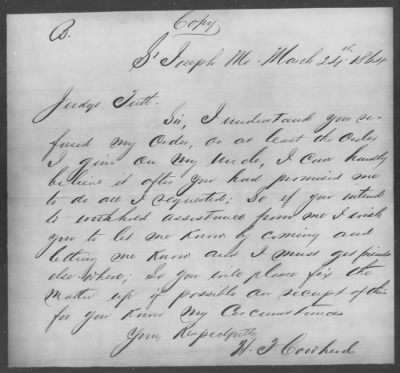 Copy
B.
St Joseph Mo. March 24th 1864
Judge Tutt.
Sir, I understand you re-
fused my Order, or as least the Order
I give on my Uncle, I can hardly
believe it after you had promised me
to do all I requested; So if you intend
to withhold assistance from me I wish
you to let me know by coming and
letting me know and I must get friends
else where; So you will please fix the
matter up if possible on receipt of this
for you know my Circumstances
Yours Respectfully
W. F. Cowherd